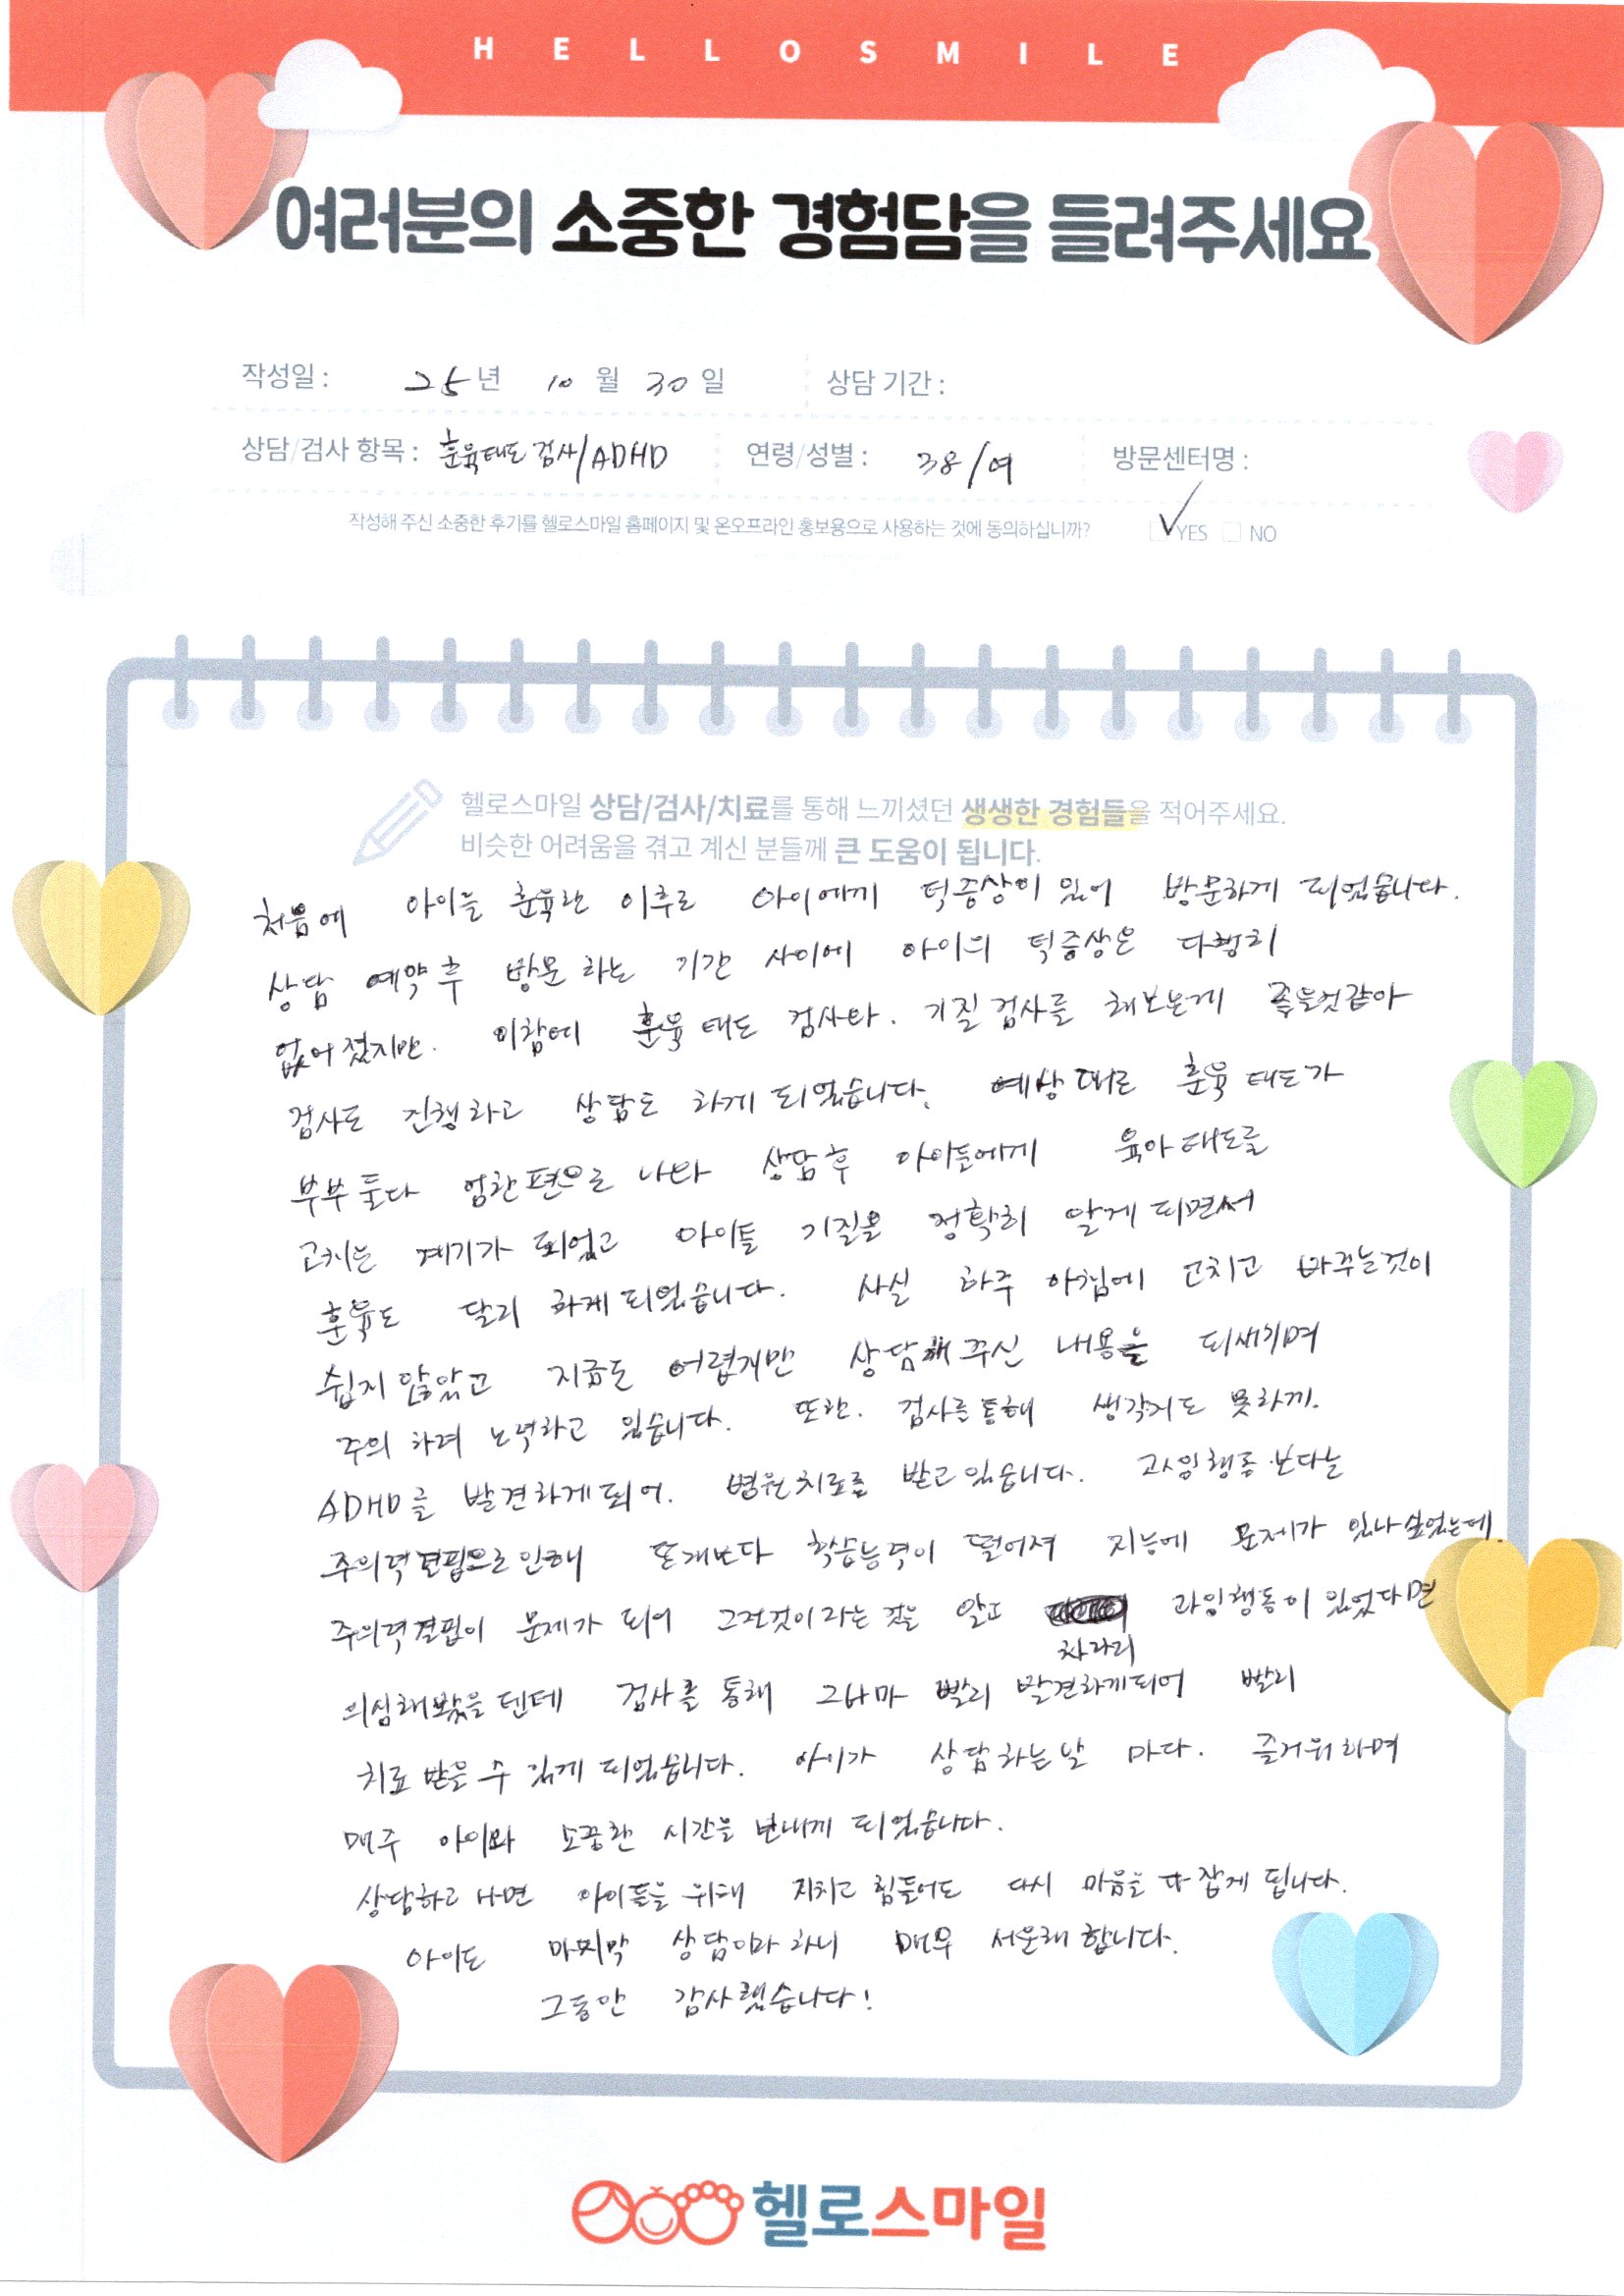 HELLOSMILE
여러분의 소중한 경험담을 들려주세요
작성일 : 25년 10월 30일 상담 기간 :
상담/검사 항목 : 훈육태도검사/ADHD 연령/성별 : 38/여 방문센터명 :
작성해 주신 소중한 후기를 헬로스마일 홈페이지 및 온오프라인 홍보용으로 사용하는 것에 동의하십니까? YES NO
헬로스마일 상담/검사/치료를 통해 느끼셨던 생생한 경험들을 적어주세요.
비슷한 어려움을 겪고 계신 분들께 큰 도움이 됩니다.
처음에 아이들 훈육한 이후로 아이에게 틱증상이 있어 방문하게 되었습니다.
상담 예약 후 방문하는 기간 사이에 아이의 틱증상은 다행히
없어졌지만. 이참에 훈육 태도 검사와. 기질검사를 해보는게 좋을것같아
검사도 진행하고 상담도 하게 되었습니다. 예상대로 훈육 태도가
부부 둘다 엄한편으로 나와 상담후 아이들에게 육아태도를
고치는 계기가 되었고 아이들 기질을 정확히 알게 되면서
훈육도 달리 하게 되었습니다. 사실 하루 아침에 고치고 바꾸는것이
쉽지 않았고 지금도 어렵지만 상담해주신 내용을 되새기며
주의 하려 노력하고 있습니다. 또한. 검사를 통해 생각지도 못하게.
ADHD를 발견하게 되어. 병원치료를 받고있습니다. 과잉행동 보다는
주의력결핍으로 인해 또래보다 학습능력이 떨어져 지능에 문제가 있나싶었는데.
주의력결핍이 문제가 되어 그런것이라는 것을 알고 차라리 과잉행동이 있었다면
의심해봤을 텐데 검사를 통해 그나마 빨리 발견하게되어 빨리
치료 받을 수 있게 되었습니다. 아이가 상담하는날 마다. 즐거워하며
매주 아이와 소중한 시간을 보내게 되었습니다.
상담하고 나면 아이들을 위해 지치고 힘들어도 다시 마음을 다 잡게 됩니다.
아이도 마지막 상담이라 하니 매우 서운해 합니다.
그동안 감사했습니다!
헬로스마일